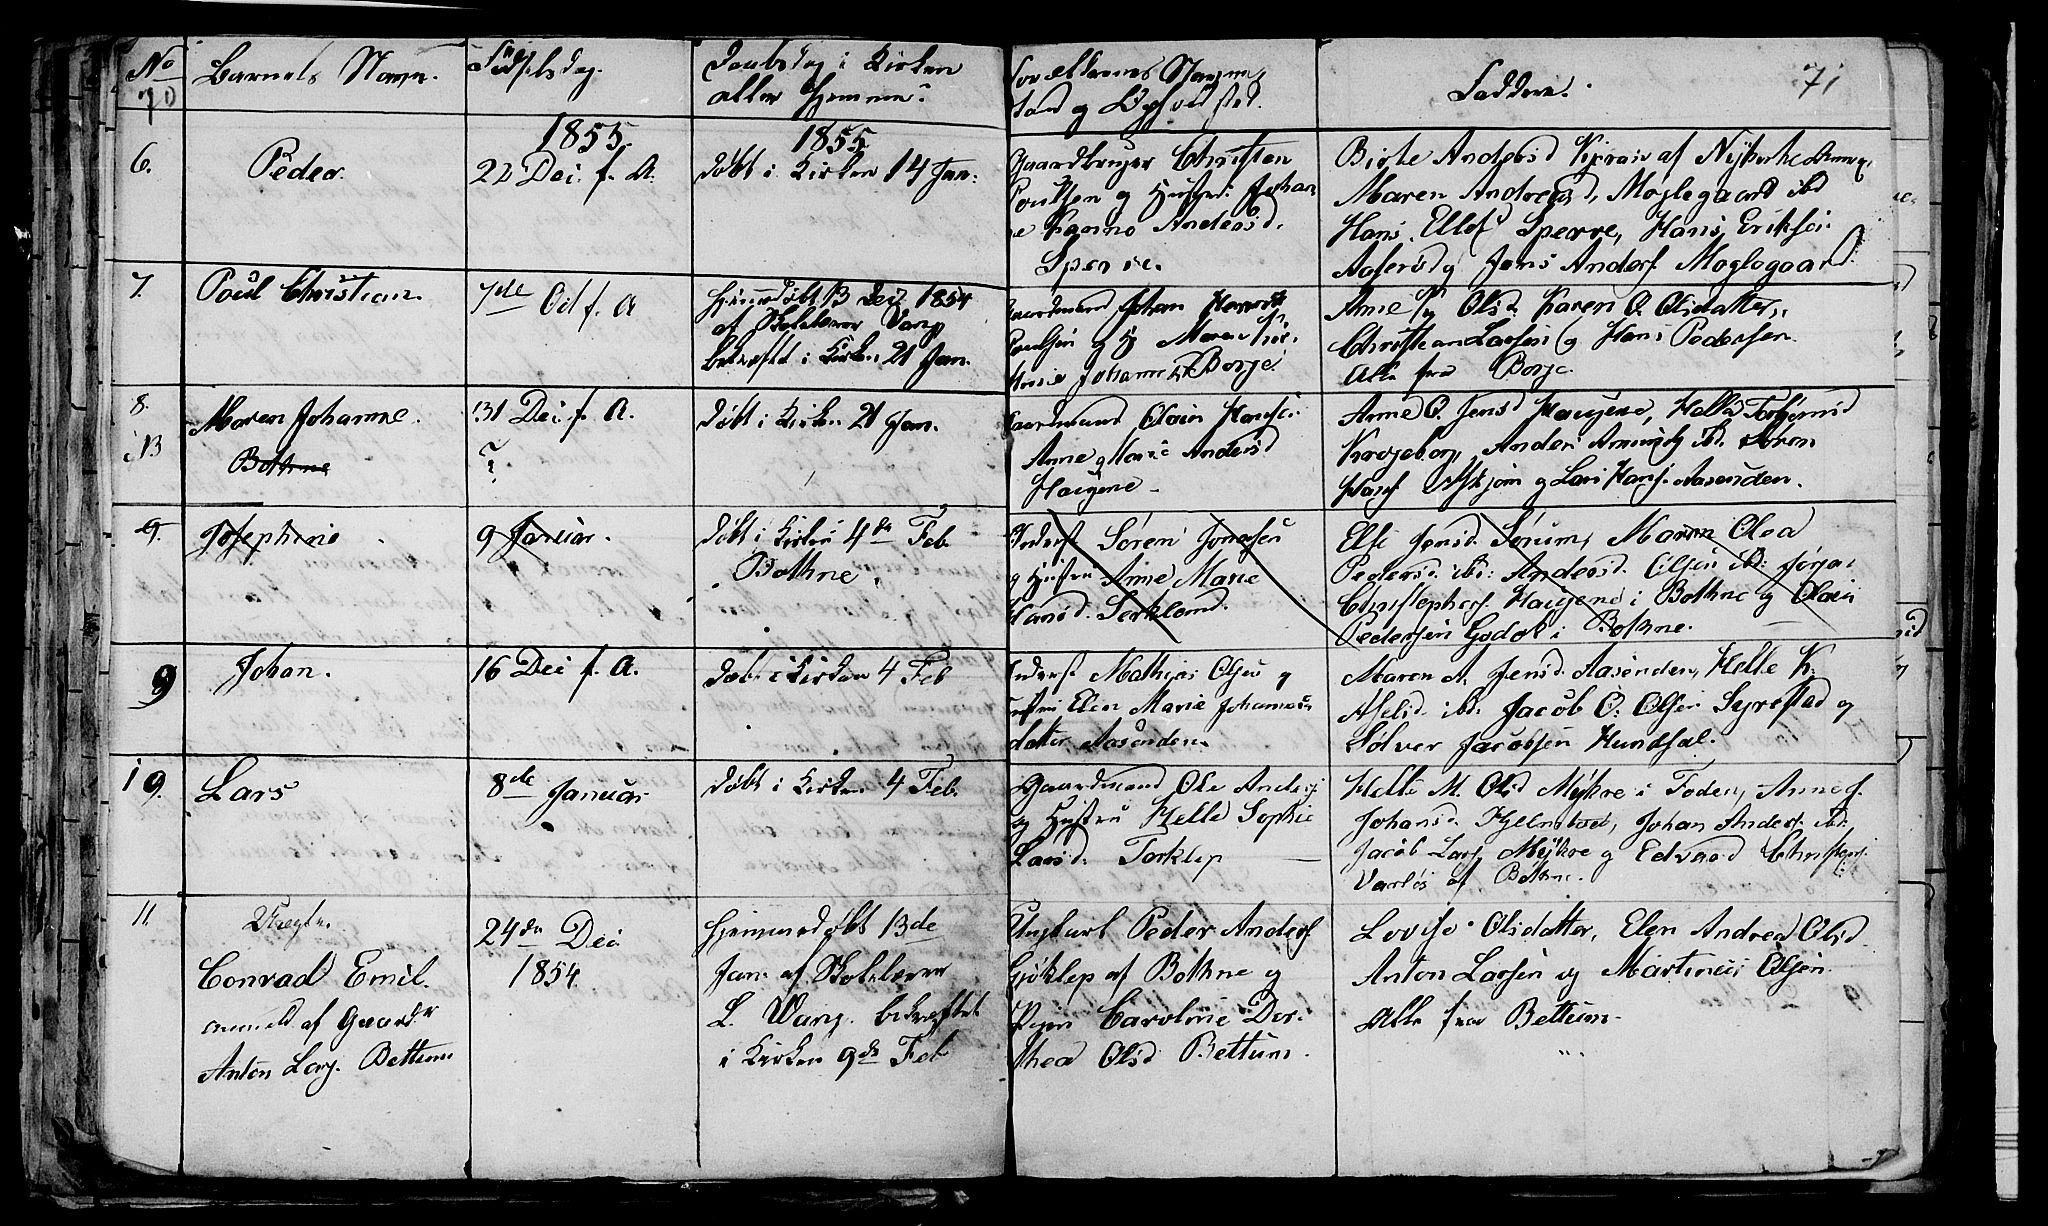 No
70
Barnets Navn.
Fødselsdag.
Daabsdag i Kirken
eller Hjemme.
Forældrenes Navne
Stand og Opholdsted.
Faddere.
71
1855
1855
6.
Peder
22 Dec. f. A.
døbt i Kirken 14 Jan:
Gaardbruger Christen
Poulsen og Hustru Johan
ne Andersd.
Sperre.
Birte Andersd af Nykirke
Maren Andersd, Moglegaard ibd
Hans Ellefs Sperre, Hans Eriksen
Aaserød og Jens Anders. Moglegaard
7.
Poul Christian.
7de Oct f. A
Hjemmedøbt 13 Dec 1854
af Skolelærer Vang
bekræftet i Kirken 21 Jan.
Gaardmand Johan Henrik
Poulsen og H Maren
Johanne Borge
Anne Olsd. Karen O. Olsdatter,
Christian Larsen og Hans Pedersen
Alle fra Borge.
8.
Maren Johanne.
31 Dec. f. A.
døbt i Kirken 21 Jan.
Gaardmand Olaus Hansen
Anne Marie Andersd
Haugene
Anne O. Jensd Haugene, Helle Torbjørnsd
Krogeborg, Anders ibd. Søren
Hans. og Lars Hans. Aasenden.
13
Bothne
?
9.
Josephine
9 Januar.
døbt i Kirken 4de Feb.
Bothne.
Inderst Søren Jonassen
og Hustru Anne Marie
Hansd. Serkland.
Else Jensd. Sørum, Maren Olea
Pedersd. ibd: Andersd. Olsen ibd: Jørgen
Christophers. Haugene i Bothne og Olaus
Pedersen Godal i Bothne.
9
Johan.
16 Dec f. A.
døbt i Kirken 4 Feb
Inderst Mathias Olsen og
Hustru Elen Marie Johannes
datter Aasenden
Maren A. Jensd. Aasenden, Helle K.
Axelsd. ibd. Jacob O. Olsen Syrestad og
Sølver Jacobsen Hundsal.
10.
Lars
8de Januar
døbt i Kirken 4 Feb.
Gaardmand Ole Anders.
og Hustru Helle Sophie
Larsd. Torklep
Helle M. Olsd Myhre i Foden, Anne
Johansd. Hjelmtvet, Johan Anders. ibd.
Jacob Lars. Myhre og Edvard Christens.
Varløs af Bothne.
11.
Uægte.
Conrad Emil.
anmeld af Gaardr
Anton Lars. Bettum
24de Dec
1854
Hjemmedøbt 13de
Jan. af Skolelærer
L. Vang. bekræftet
i Kirken 9de Feb
Ungkarl Peder Anders
Gjøklep af Bothne og
Pigen Caroline Dor.
thea Olsd Bettum.
Lovise Olsdatter, Elen Andrea Olsd.
Anton Larsen og Martinus Olsen.
Alle fra Bettum.